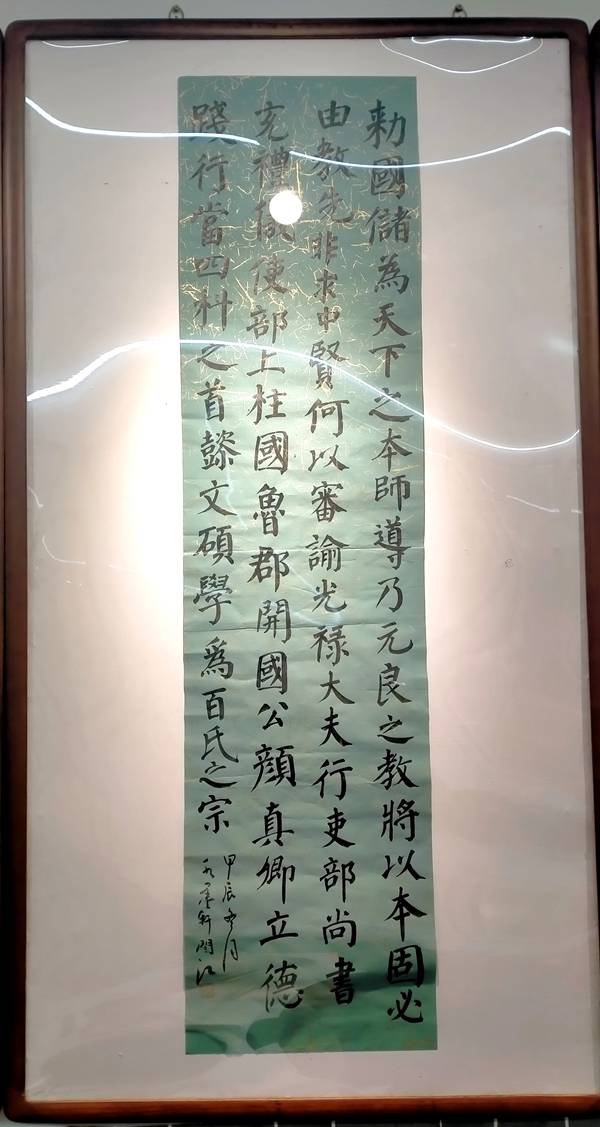 勑國儲為天下之本師導乃元良之教將以本固必
由教先非求中賢何以審諭光禄大夫行吏部尚書
充禮儀使部上柱國魯郡開國公顔真卿立德
踐行當四科之首懿文碩學爲百氏之宗
甲辰冬月